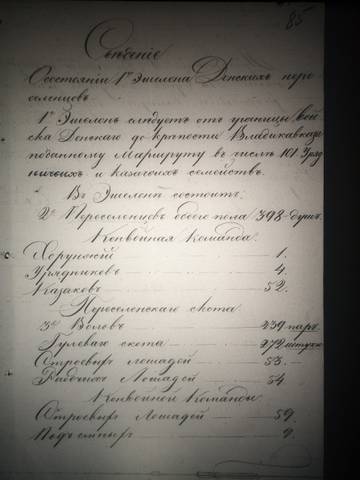 85
Сведенiе
О состоянiи 1го Эшелона Донскихъ пере
селенцовъ
1й Эшелонъ следуетъ отъ границы Вой
ска Донскаго до крѣпости Владикавказа
по данному Маршруту въ числѣ 101 Уряд
ничьихъ и Казачьихъ семействъ.
Въ Эшелонѣ состоитъ:
Переселенцовъ обоего пола 398 душъ.
Конвойная Команда
Хорунжiй 1.
Урядниковъ 4.
Казаковъ 52.
Переселенскаго скота
Воловъ 239 паръ.
Гулеваго скота 272 штуки
Строевыхъ лошадей 53.
Рабочихъ Лошадей 54
Конвойной Команды
Строевыхъ Лошадей 59.
Подъемныхъ 9.